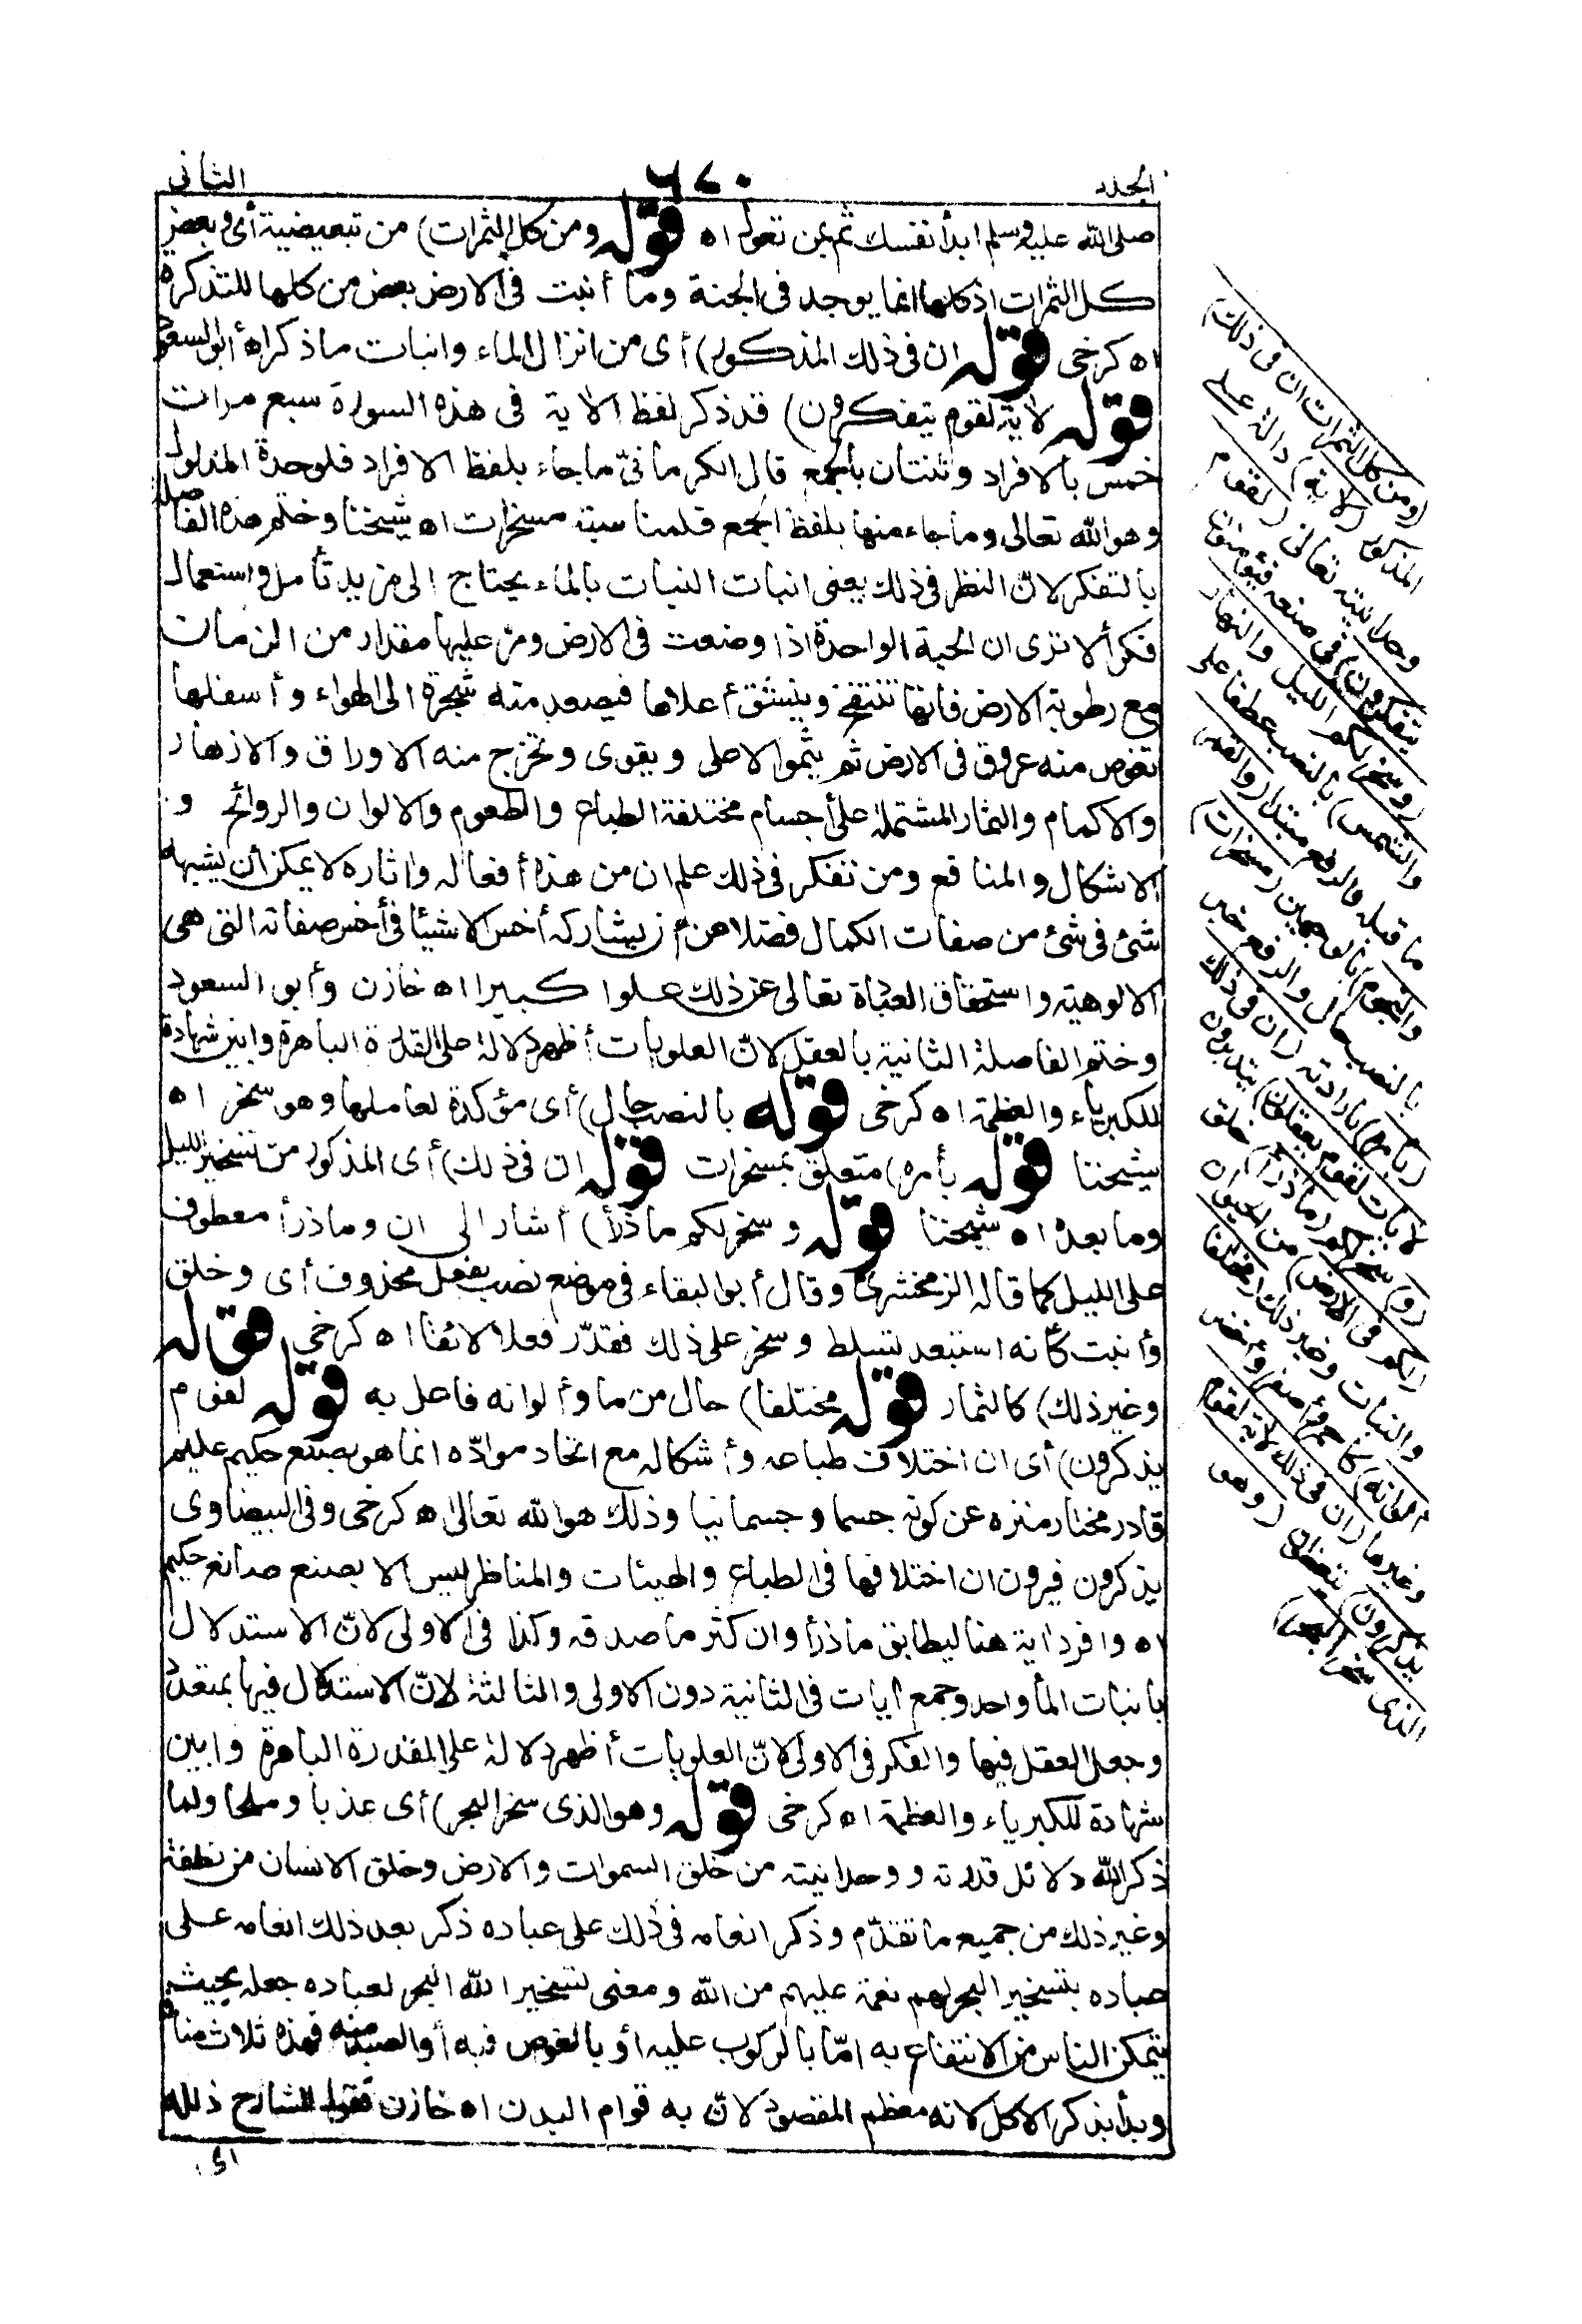 الجلد ٦٧٠ الثانى
صلى الله عليه وسلم ابدأ نفسك ثم بمن تعول اه قوله ومن كل الثمرات) من تبعيضية أى وبعض
كل الثمرات اذ كلها انما يوجد فى الجنة وما أنبت فى الارض بعض من كلها للتذكرة
اه كرخى قوله ان فى ذلك المذكور) أى من انزال الماء وانبات ما ذكر اه أبو السعود
قوله لاية لقوم يتفكرون) قد ذكر لفظ الاية فى هذه السورة سبع مرات
خمس بالافراد وثنتان بالجمع قال الكرمانىّ ما جاء بلفظ الافراد فلوحدة المدلول
وهو الله تعالى وما جاء منها بلفظ الجمع فلمناسبة مسخرات اه شيخنا وختم هذه الفاصلة
بالتفكر لانّ النظر فى ذلك يعنى انبات النبات بالماء يحتاج الى مزيد تأمل واستعمال
فكر ألا ترى ان الحبة الواحدة اذا وضعت فى الارض ومرّ عليها مقدار من الزمان
مع رطوبة الارض فانها تنتفخ وينشق أعلاها فيصعد منه شجرة الى الهواء وأسفلها
تغوص منه عروق فى الارض ثم ينمو الاعلى ويقوى وتخرج منه الاوراق والازهار
والاكمام والثمار المشتملة على أجسام مختلفة الطباع والطعوم والالوان والروائح و
الاشكال والمنافع ومن تفكر فى ذلك علم ان من هذه أفعاله واثاره لا يمكن أن يشبهه
شئ فى شئ من صفات الكمال فضلا عن أن يشاركه أخس الاشيئا فى أخس صفاته التى هى
الالوهية واستحقاق العبادة تعالى عن ذلك علوا كبيرا اه خازن وأبو السعود
وختم الفاصلة الثانية بالعقل لانّ العلويات أظهر دلالة على القدرة الباهرة وابين شهادة
للكبرياء والعظمة اه كرخى قوله بالنصب حال) أى مؤكدة لعاملها وهو سخر اه
شيخنا قوله بأمره) متعلق بمسخرات قوله ان فى ذلك) أى المذكور من تسخير الليل
وما بعده اه شيخنا قوله وسخر لكم ما ذرأ) أشار الى ان وما ذرأ معطوف
على الليل كما قاله الزمخشرى وقال أبو البقاء فى موضع نصب بفعل محذوف أى وخلق
وأنبت كأنه استبعد تسلط وسخر على ذلك فقدّر فعلا لائقا اه كرخى قوله
وغير ذلك) كالثمار قوله مختلفا) حال من ما وألوانه فاعل به قوله لقوم
يذكرون) أى ان اختلاف طباعه وأشكاله مع اتحاد موادّه انما هو بصنع حكيم عليم
قادر مختار منزه عن كونه جسما وجسمانيا وذلك هو الله تعالى اه كرخى وفى البيضاوى
يذكرون فيرون ان اختلافها فى الطباع والهيئات والمناظر ليس الا بصنع صانع حكيم
اه وافرد اية هنا ليطابق ما ذرأ وان كثر ما صدقه وكذا فى الاولى لانّ الاستدلال
بانبات الماء واحد وجمع أيات فى الثانية دون الاولى والثالثة لانّ الاستدلال فيها بمتعدد
وجعل العقل فيها والفكر فى الاولى لانّ العلويات أظهر دلالة على المقدرة الباهرة وابين
شهادة للكبرياء والعظمة اه كرخى قوله وهو الذى سخر البحر) أى عذبا وملحا ولما
ذكر الله دلائل قدرته ووحدانيته من خلق السموات والارض وخلق الانسان من نطفة
وغير ذلك من جميع ما تقدّم وذكر انعامه فى ذلك على عباده ذكر بعد ذلك انعامه على
عباده بتسخير البحر لهم نعمة عليهم من الله ومعنى تسخير الله البحر لعباده جعله بحيث
يتمكن الناس من الانتفاع به امّا بالركوب عليه أو بالغوص فيه أو الصيد منه فهذه ثلاث منافع
وبدأ بذكر الاكل لانه معظم المقصود لانّ به قوام البدن اه خازن فقول الشارح ذلله
اى
(ومن كل الثمرات ان فى ذلك)
المذكور (لاية) دالة على
وحدانيته تعالى (لقوم
يتفكرون) فى صنعه فيؤمنون
(وسخر لكم الليل والنهار
والشمس) بالنصب عطفا على
ما قبله والرفع مبتدا (والقمر
والنجوم) بالوجهين (مسخرات)
بالنصب حال والرفع خبر
(بأمره) بارادته (ان فى ذلك
لايات لقوم يعقلون) يتدبرون
(و) سخر لكم (ما ذرأ) خلق
لكم فى الارض) من الحيوان
والنبات وغير ذلك (مختلفا
ألوانه) كأحمر وأصفر وأخضر
وغيرها (ان فى ذلك لاية لقوم
يذكرون) يتعظون (وهو
الذى سخر البحر)